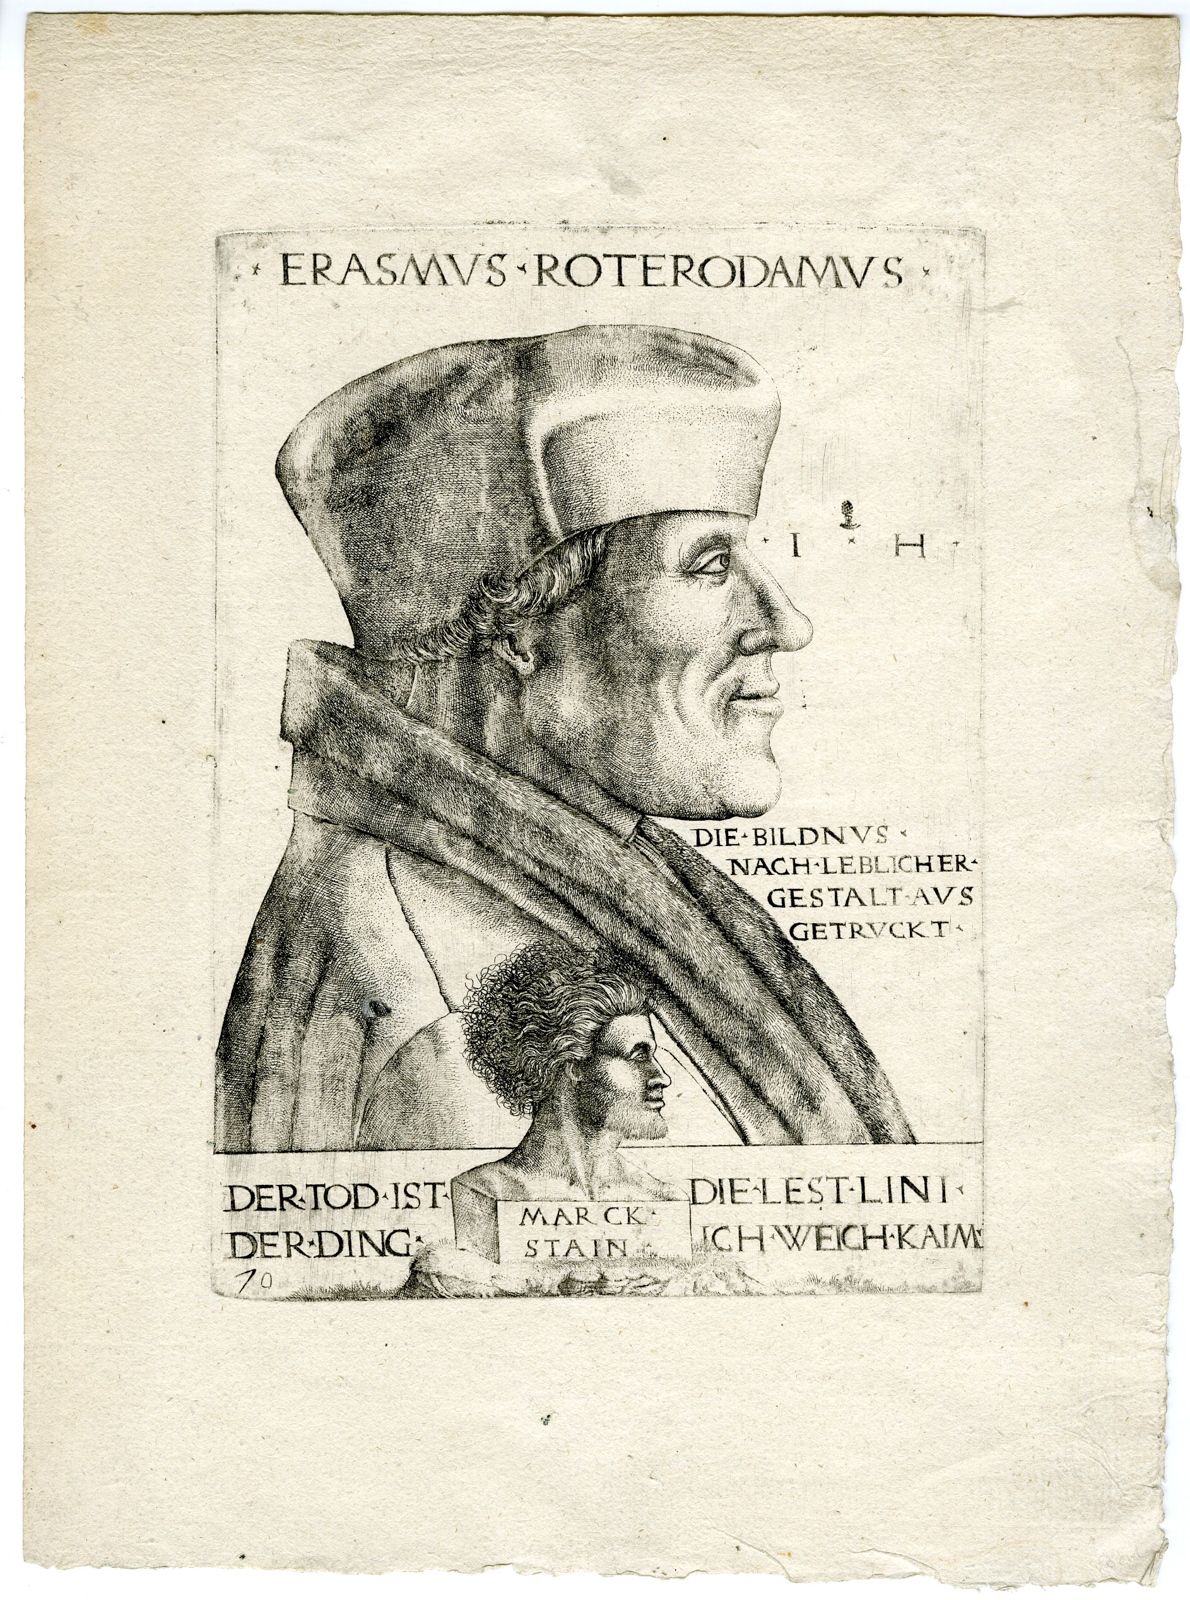 ERASMVS · ROTERODAMVS
I H
DIE · BILDNVS ·
NACH · LEBLICHER ·
GESTALT · AVS
GETRVCKT ·
DER · TOD · IST · DIE · LEST · LINI ·
DER · DING · ICH · WEICH · KAIM
MARCK
STAIN
70